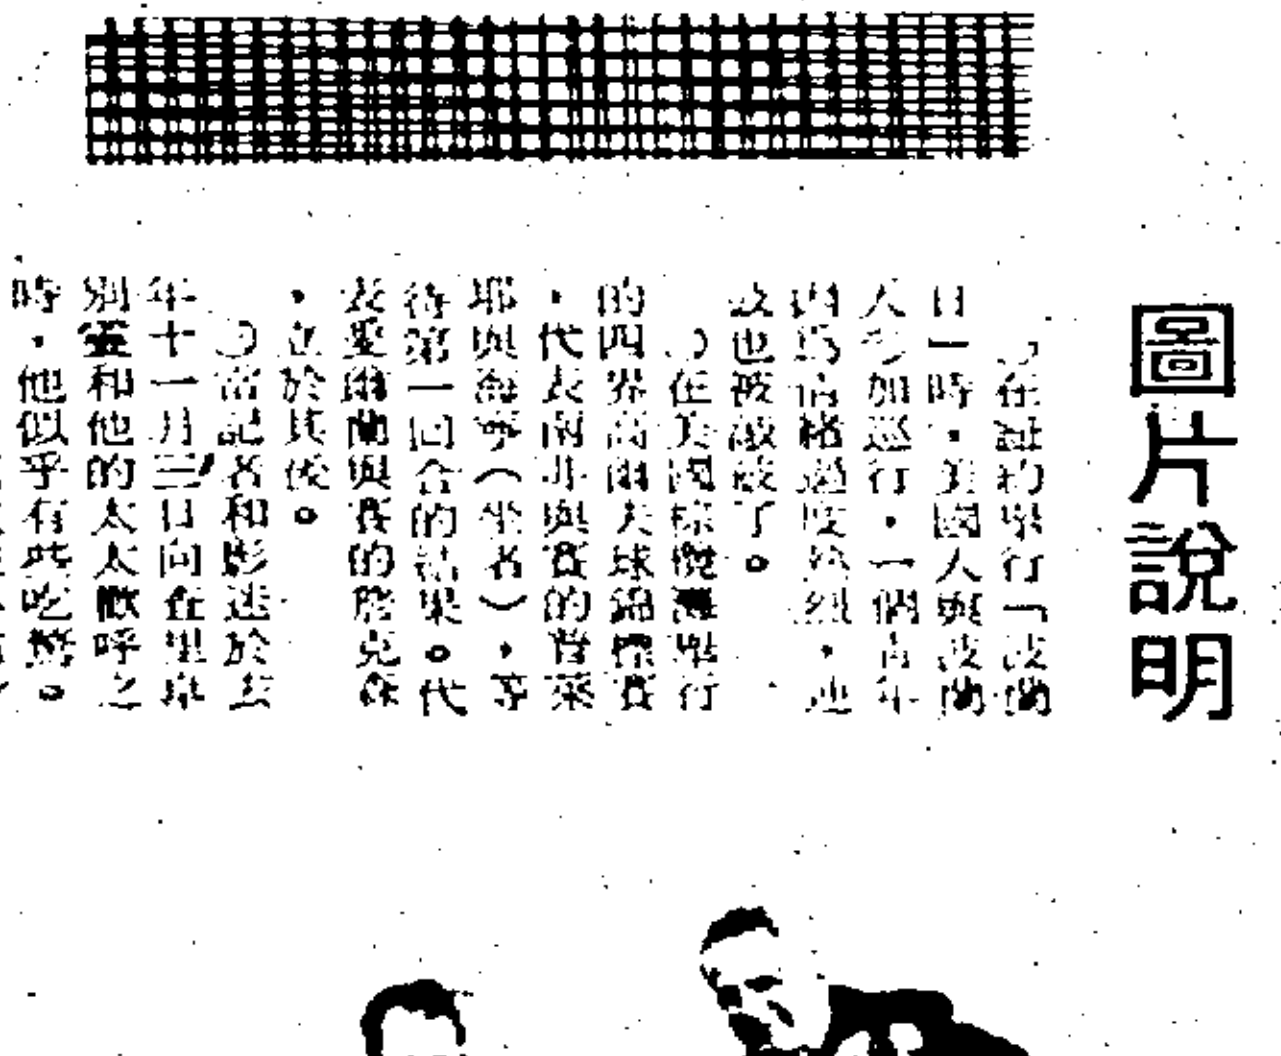 圖片說明
在紐約舉行「波蘭
日」時，美國人與波蘭
人參加巡行，一個青年
因爲情格過度熱烈，連
鼓也被敲破了。
在美國檀香灘舉行
的四界高爾夫球錦標賽
，代表南非與賽的普萊
耶與海寧（坐者），等
待第一回合的結果。代
表愛爾蘭與賽的詹克森
，立於其後。
當記者和影迷於去
年十一月三日向查里卓
別靈和他的太太歡呼之
時，他似乎有些吃驚。